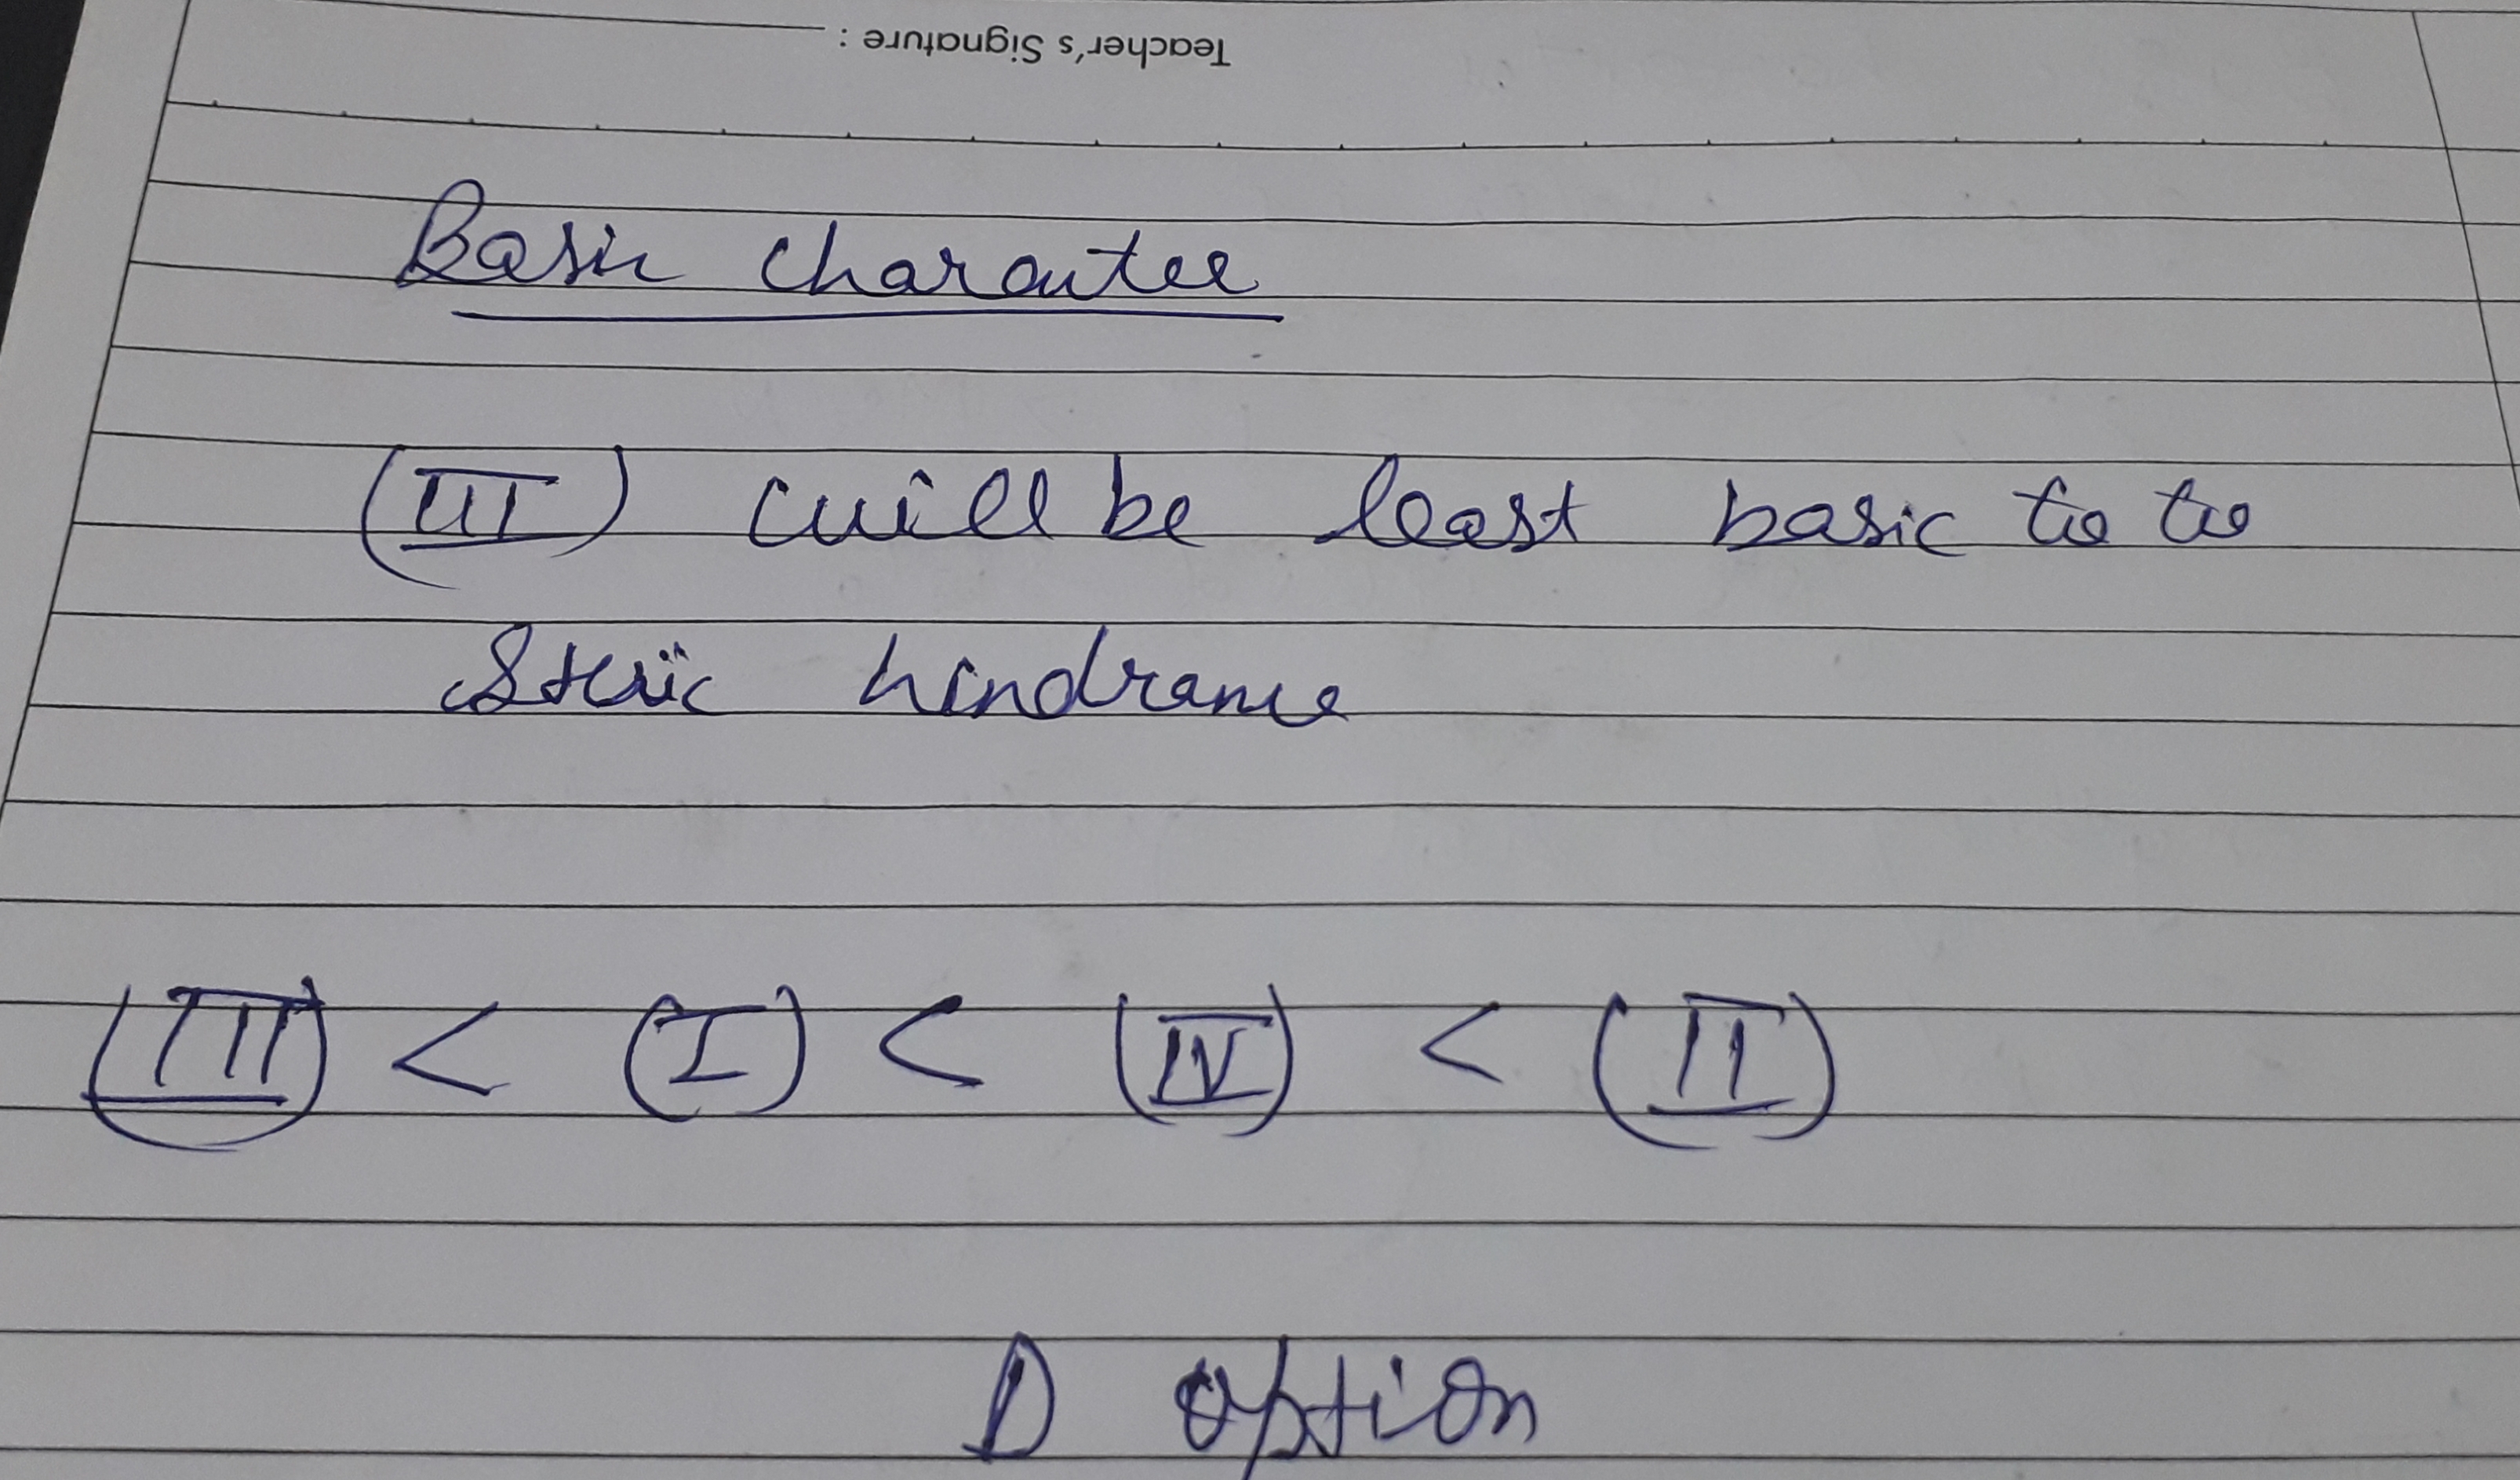 Teacher's Signature :
Basic character
(III) will be least basic to to
Steric hindrance
(III) < (I) < (IV) < (II)
D option